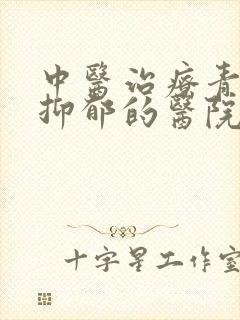 中醫治療青
抑郁的醫院
十字星工作室